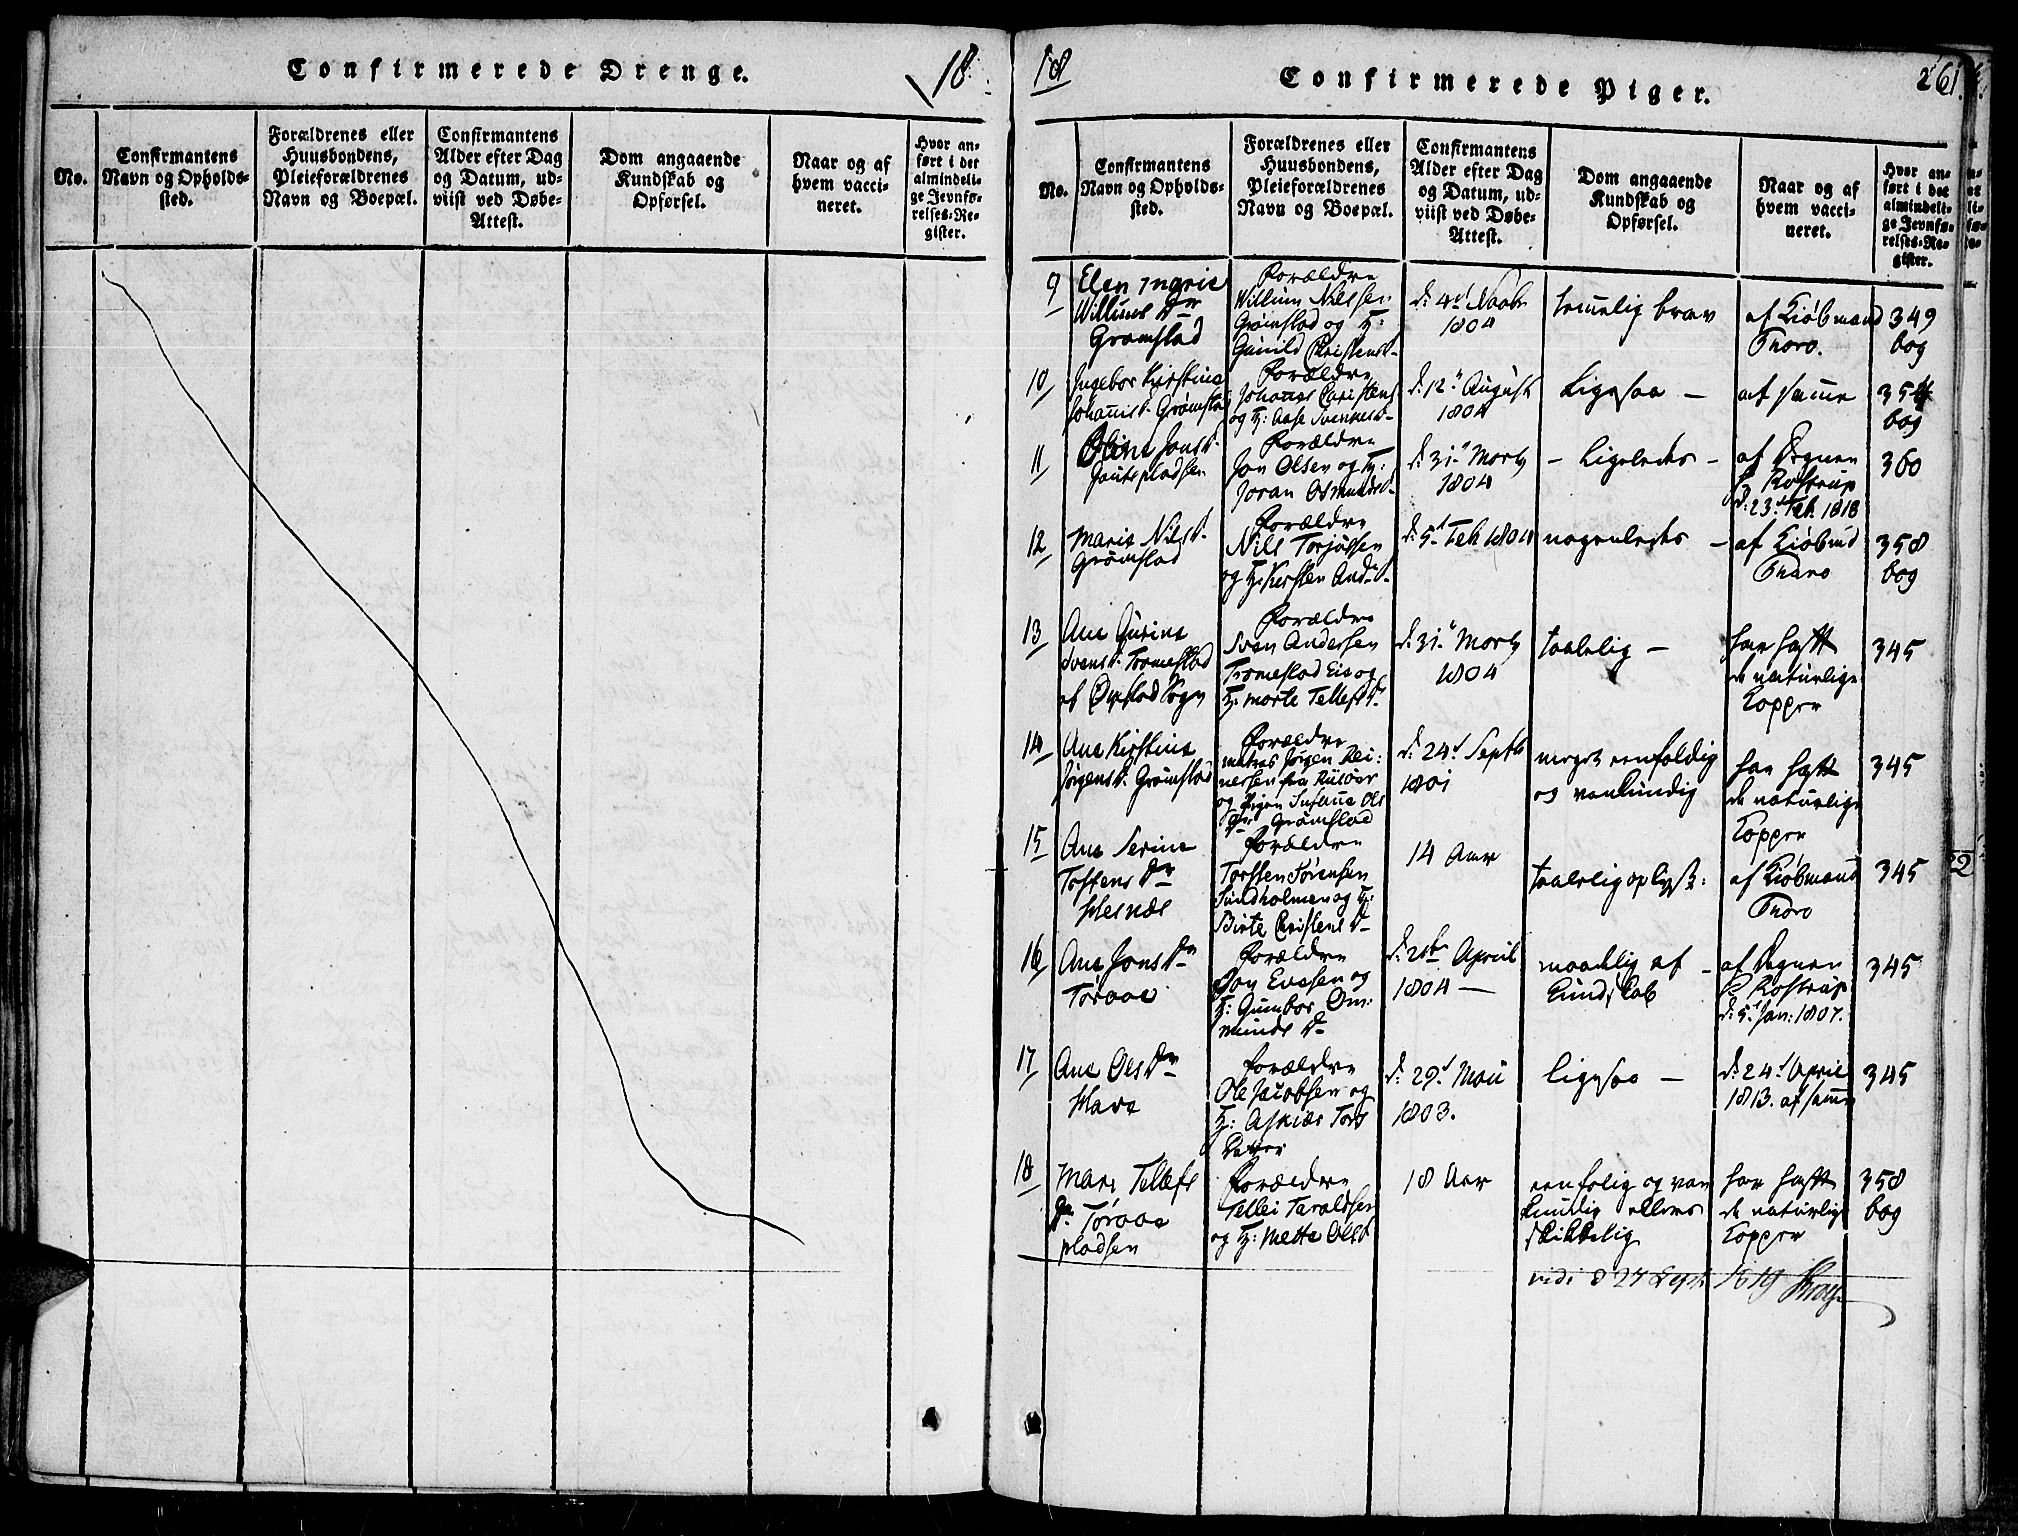 Confirmerede Drenge.
18.
No.
Confirmantens
Navn og Opholds-
sted.
Forældrenes eller
Huusbondens,
Pleieforældrenes
Navn og Boepæl.
Confirmantens
Alder efter Dag
og Datum, ud-
viist ved Døbe-
Attest.
Dom angaaende
Kundskab og
Opførsel.
Naar og af
hvem vacci-
neret.
Hvor an-
ført i det
almindeli-
ge Jevnfø-
relses-Re-
gister.
18
Confirmerede Piger.
261.
No.
Confirmantens
Navn og Opholds-
sted.
Forældrenes eller
Huusbondens,
Pleieforældrenes
Navn og Boepæl.
Confirmantens
Alder efter Dag
og Datum, ud-
viist ved Døbe-
Attest.
Dom angaaende
Kundskab og
Opførsel.
Naar og af
hvem vacci-
neret.
Hvor an-
ført i det
almindeli-
ge Jevnfø-
relses-Re-
gister.
9
Elen Ingrie
Willums Dr
Gromstad
Forældre
Willum Nilssen
Grømstad og H:
Gunild Christensd.
d: 4d Novbr
1804
temelig brav
af Kiøbmand
Thoro.
349
bog
10
Ingebor Kirstine
Johannisd. Grømstad
Forældre
Johanes Christens.
og H: Aase Svennesd.
d: 12d August
1804
Ligesaa –
af samme
354
bog
11
Oline Jonsd.
pladsen
Forældre
Jon Olsen og H:
Joran Osmundsd.
d: 31d Marts
1804
– Ligeledes –
af Degnen
H. Rostrup
d: 23d Feb. 1818
360
12
Marie Nilsd.
Grømstad
Forældre
Nils Torjussen
og H: Kirsten Andsd.
d: 5d Feb 1804
nogenledes –
af Kiøbmd
Thoro
358
bog
13
Ane Gurine
Svensd. Tromestad
af Øyestad Sogn
Forældre
Sven Andersen
Tromestad Eie og
H: Marte Tellefsd.
d: 31d Marts
1804
taalelig –
har haft
de naturlige
Kopper
345
14
Ane Kirstine
Jørgensd. Grømstad
Forældre
matros Jørgen Rei:
nersen fra Riisøer
og Pigen Susanne Ols
Dr Grømstad
d: 24d Septb
1801
meget eenfoldig
og vankundig
har haft
de naturlige
Kopper
345
15
Ane Serine
Tostens Dr
Hesnæs
Forældre
Torsten Sørensen
Sundholmen og H:
Birte Christens D.
14 Aar
taalelig oplyst:
af Kiøbmand
Thoro
345
16
Ane Jons Dr
Toraae
Forældre
Jon Evesen og
H: Gumbor Om:
munds D.
April
1804 –
maadelig af –
Kundskab
af Degnen
H. Rostrup
d: 5d Jan: 1807.
345
17
Ane Ols Dr
Have
Forældre
Ole Jacobsen og
H: Askier Tors
Datter
d: 29d Maii
1803.
ligesaa –
d: 24d April
1813. af samm
345
18
Mari Tellefs
Dr. Toraae
pladsen
Forældre
Tellei Taraldsen
og H: Mette Olsd.
18 Aar
eenfolig og van
kundig ellers
skikkelig
har haft
de naturlige
Kopper
358
bog
vidi d 27 Sept 1819
22